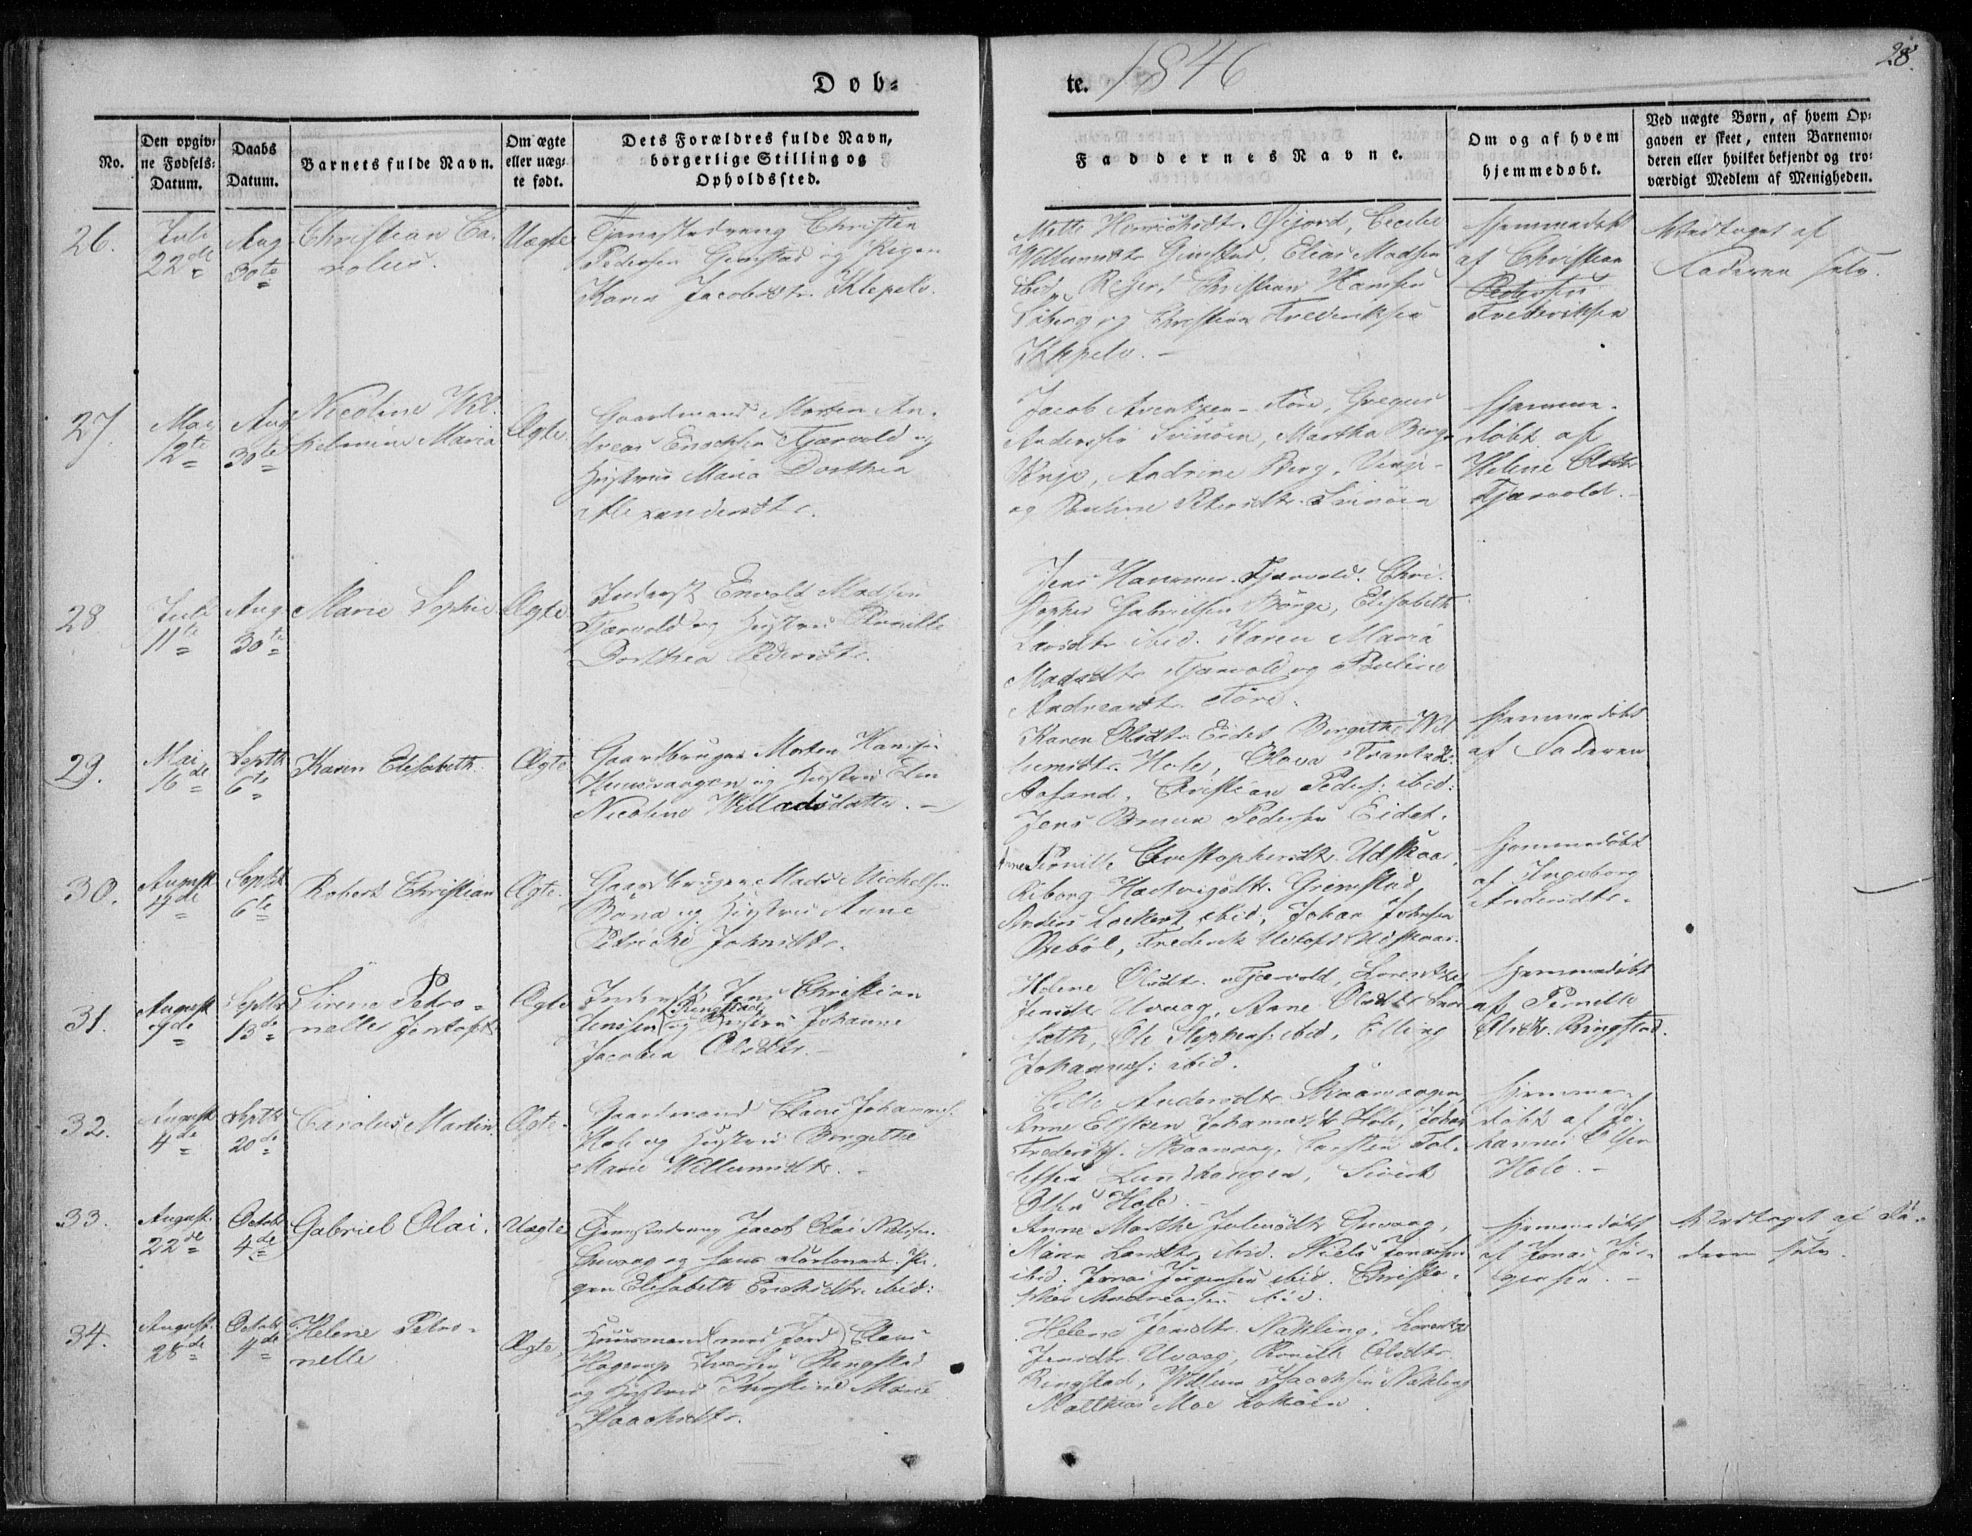 Døb=
te. 1846
28.
No.
Den opgiv=
ne Fødsels=
Datum.
Daabs
Datum.
Barnets fulde Navn.
Om ægte
eller uæg=
te født.
Dets Forældres fulde Navn,
borgerlige Stilling og
Opholdssted.
Faddernes Navne.
Om og af hvem
hjemmedøbt.
Ved uægte Børn, af hvem Op=
gaven er skeet, enten Barnemo=
deren eller hvilket bekjendt og tro=
værdigt Medlem af Menigheden.
26.
Juli
22de
Aug
30te
Christian Ca-
rolus.
Uægte
Tjenestedreng Christen
Pedersen Grimstad og Pigen
Karen Jacobsdtr. Klepelv.
Mette Henrichsdtr. Øijord, Cecilie
Willumsdtr. Grimstad, Elias Madsen
ibid, Christian Hansen
og Christian Frederiksen
Klepelv.
Hjemmedøbt
af Christian
Pedersen
Frederiksen
Modtaget af
Faderen selv.
27.
Mai
12te
Aug
30te
Nicoline Wil-
helmine Maria
Ægte
Gaardmand Morten An-
dreas Enochsen Fjærvold og
Hustrue Maria Dorthea
Alexandersdtr.
Jacob Arentzen Føre, Gregus
Anderssen Svinøen, Martha Berg
Vinje, Andrine Berg, Vinje
og Pauline Petersdtr. Svinøen
Hjemme-
døbt af
Helene Olsdtr
Fjærvold.
28
Juli
11te
Aug
30te
Marie Sophie
Ægte
Inderst Enevold Madsen
Fjærvold og Hustrue Pernille
Dorthea Pedersdtr.
Jens Hammer Fjærvold, Chri-
stopher Gabrielsen Børge, Elisabeth
Larsdtr. ibid. Karen Maria
Madsdtr. Fjærvold og Pauline
Andreasdtr. Føre.
29.
Mai
16de
Septbr
6te
Karen Elisabeth.
Ægte
Gaardbruger Morten Hansen
og Hustrue Elen
Nicoline Willadsdatter.
Karen Olsdtr. Eidet Bergithe Wil-
lumsdtr. Hole, Olava Frantzdtr.
Aasand, Christian Peders: ibid:
Jens Bruun Pedersen Eidet.
Hjemmedøbt
af Faderen
30.
August
4de
Septbr
6te
Robert Christian
Ægte.
Gaardbruger Mads Michelsen
Bøna og Hustrue Anne
Petrikke Johnsdtr.
Anne Pernille Christophersdtr. Udskaar,
Riborg Hartvigsdtr. Grimstad,
Anders Lockert ibid, Johan Johnsen
Bøbøl, Frederik Udskaar.
Hjemmedøbt
af Ingeborg
Andersdtr.
31.
August
9de
Septbr
13de
Sirene Petro-
nelle Jentoft
Ægte
Inderst Jens Christian
Jensen Ringstad og Hustrue Johanne
Jacobea Olsdtr.
Helene Olsdtr. Fjærvold, Lorentze
Jensdtr Uvaag, Anne Olsdtr. Sør-
sæth, Ole Stephens: ibid, Elling
Johannes: ibid.
Hjemmedøbt
af Pernille
Olsdtr. Ringstad.
32.
August
4de
Septbr
20de
Carolus Martin
Ægte.
Gaardmand Claus Johannes:
Hole og Hustrue Bergitthe
Marie Willumsdtr.
Andersdtr. Skaarvaagen,
Anne Elisken Johannesdtr Hole, Johan
Frederiks. Skaarvaag, Carsten Tol-
lefsen Lundvaagen, Sivert
Olsen Hole.
Hjemme-
døbt af Jo-
hannes Olsen
Hole.
33.
August
22de
Octobr
4de
Gabriel Olai.
Uægte
Tjenestedreng Jacob Olai Nielsen
Uvaag og hans Pi-
gen Elisabeth Erichsdtr. ibid:
Anne Marthe Uvaag,
Maren Larsdtr. ibid. Niels Jonassen
ibid. Jonas Jørgensen ibid. Christo-
pher Andreassen ibid.
Hjemmedøbt
af Jonas Jør-
gensen.
Modtaget af Fa-
deren selv.
34.
August
28de
Octobr
4de
Helene Petro-
nelle
Ægte.
Huusmand med Jord, Claus
Hagerup Iversen Ringstad
og Hustrue Christine Marie
Isaachsdtr.
Helene Jensdtr. Nakling, Lorentze
Jensdtr Uvaag, Pernille Olsdtr.
Ringstad, Willum Isaachsen Nakling
Matthias Moe Lokøen.